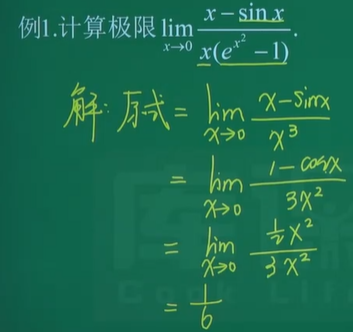 例1.计算极限 lim_{x→0} \frac{x - sin x}{x(e^{x^2} - 1)}.
解: 原式 = lim_{x→0} \frac{x - sinx}{x^3}
= lim_{x→0} \frac{1 - cosx}{3x^2}
= lim_{x→0} \frac{\frac{1}{2}x^2}{3x^2}
= \frac{1}{6}